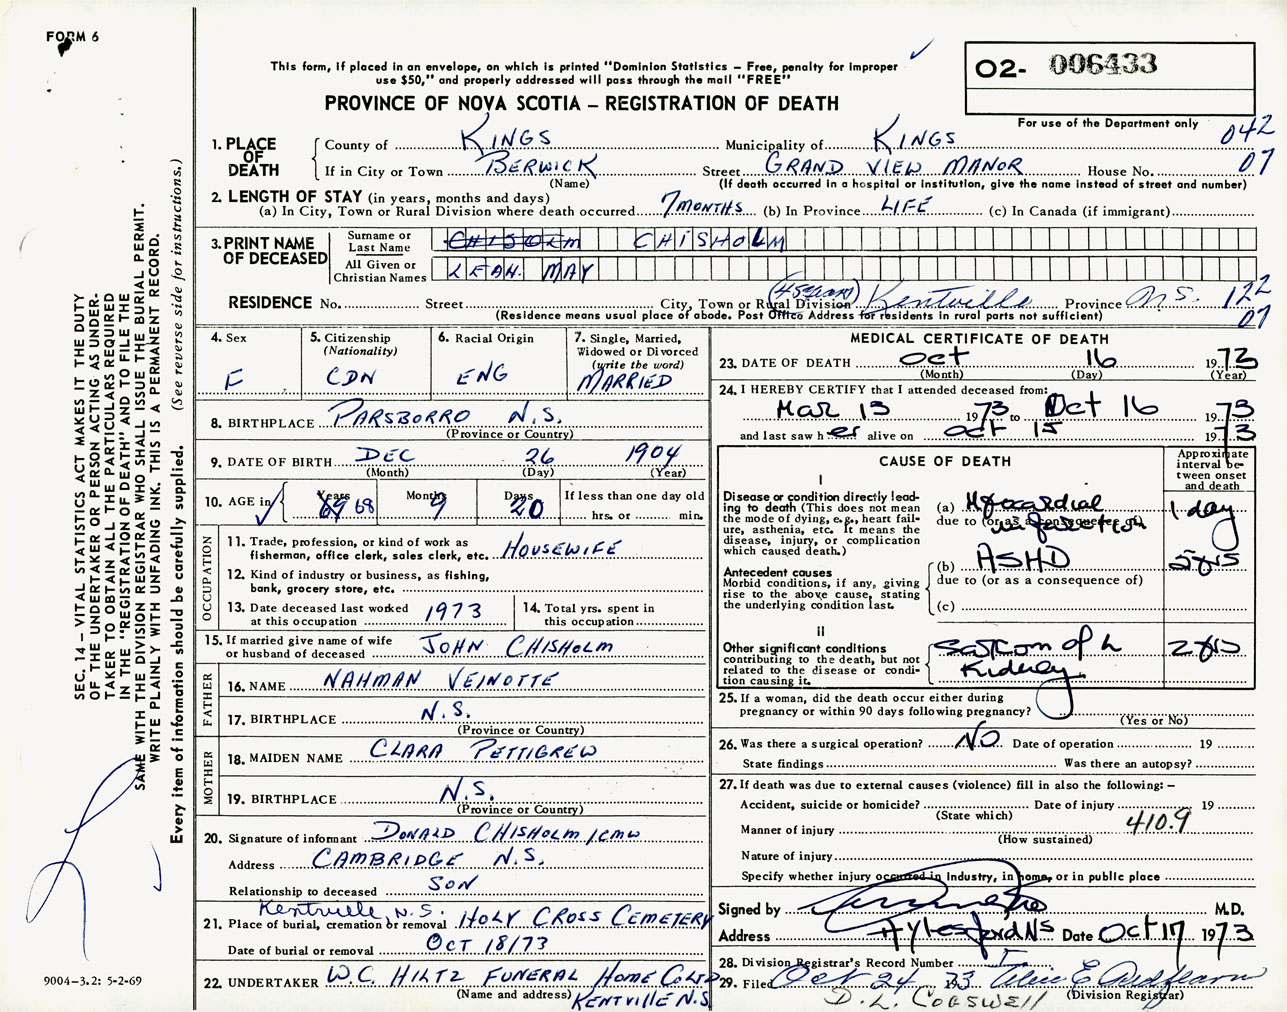 FORM 6
This form, if placed in an envelope, on which is printed "Dominion Statistics – Free, penalty for improper
use $50," and properly addressed will pass through the mail "FREE"
PROVINCE OF NOVA SCOTIA – REGISTRATION OF DEATH
O2- 006433
For use of the Department only
042
07
1. PLACE OF DEATH
County of KINGS Municipality of KINGS
If in City or Town BERWICK Street GRAND VIEW MANOR House No.
(Name) (If death occurred in a hospital or institution, give the name instead of street and number)
2. LENGTH OF STAY (in years, months and days)
(a) In City, Town or Rural Division where death occurred 7 MONTHS (b) In Province LIFE (c) In Canada (if immigrant)
3. PRINT NAME OF DECEASED
Surname or Last Name CHISOLM CHISHOLM
All Given or Christian Names LEAH MAY
RESIDENCE No. Street City, Town or Rural Division (45 years) Kentville Province N.S. 122
(Residence means usual place of abode. Post Office Address for residents in rural parts not sufficient) 07
4. Sex F
5. Citizenship (Nationality) CDN
6. Racial Origin ENG
7. Single, Married, Widowed or Divorced (write the word) MARRIED
8. BIRTHPLACE PARSBORRO N.S.
(Province or Country)
9. DATE OF BIRTH DEC 26 1904
(Month) (Day) (Year)
10. AGE in Years 69 68 Months 9 Days 20 If less than one day old
hrs. or min.
OCCUPATION
11. Trade, profession, or kind of work as
fisherman, office clerk, sales clerk, etc. HOUSEWIFE
12. Kind of industry or business, as fishing,
bank, grocery store, etc.
13. Date deceased last worked
at this occupation 1973
14. Total yrs. spent in
this occupation
15. If married give name of wife
or husband of deceased JOHN CHISHOLM
FATHER
16. NAME NAHMAN VEINOTTE
17. BIRTHPLACE N.S.
(Province or Country)
MOTHER
18. MAIDEN NAME CLARA PETTIGREW
19. BIRTHPLACE N.S.
(Province or Country)
20. Signature of informant DONALD CHISHOLM /cmw
Address CAMBRIDGE N.S.
Relationship to deceased SON
Kentville, N.S.
21. Place of burial, cremation or removal HOLY CROSS CEMETERY
Date of burial or removal OCT 18/73
22. UNDERTAKER W.C. HILTZ FUNERAL HOME CO LTD
(Name and address) KENTVILLE N.S.
MEDICAL CERTIFICATE OF DEATH
23. DATE OF DEATH Oct 16 1973
(Month) (Day) (Year)
24. I HEREBY CERTIFY that I attended deceased from:
Mar 13 1973 to Oct 16 1973
and last saw her alive on Oct 15 1973
CAUSE OF DEATH
Approximate interval between onset and death
I
Disease or condition directly leading to death (This does not mean the mode of dying, e.g., heart failure, asthenia, etc. It means the disease, injury, or complication which caused death.)
(a) Myocardial infarction 1 day
due to (or as a consequence of)
Antecedent causes
Morbid conditions, if any, giving rise to the above cause, stating the underlying condition last.
(b) ASHD 5 yrs
due to (or as a consequence of)
(c)
II
Other significant conditions
contributing to the death, but not related to the disease or condition causing it.
of L Kidney 2 yrs
25. If a woman, did the death occur either during
pregnancy or within 90 days following pregnancy?
(Yes or No)
26. Was there a surgical operation? NO Date of operation 19
State findings Was there an autopsy?
27. If death was due to external causes (violence) fill in also the following: –
Accident, suicide or homicide? Date of injury 19
(State which) 410.9
Manner of injury
(How sustained)
Nature of injury
Specify whether injury occurred in Industry, in home, or in public place
Signed by M.D.
Address Aylesford NS Date Oct 17 1973
28. Division Registrar's Record Number
29. Filed Oct 24 1973
(Division Registrar)
D. L. COGSWELL
SEC. 14 – VITAL STATISTICS ACT MAKES IT THE DUTY
OF THE UNDERTAKER OR PERSON ACTING AS UNDER-
TAKER TO OBTAIN ALL THE PARTICULARS REQUIRED
IN THE "REGISTRATION OF DEATH" AND TO FILE THE
SAME WITH THE DIVISION REGISTRAR WHO SHALL ISSUE THE BURIAL PERMIT.
WRITE PLAINLY WITH UNFADING INK. THIS IS A PERMANENT RECORD.
Every item of information should be carefully supplied. (See reverse side for instructions.)
9004-3.2: 5-2-69